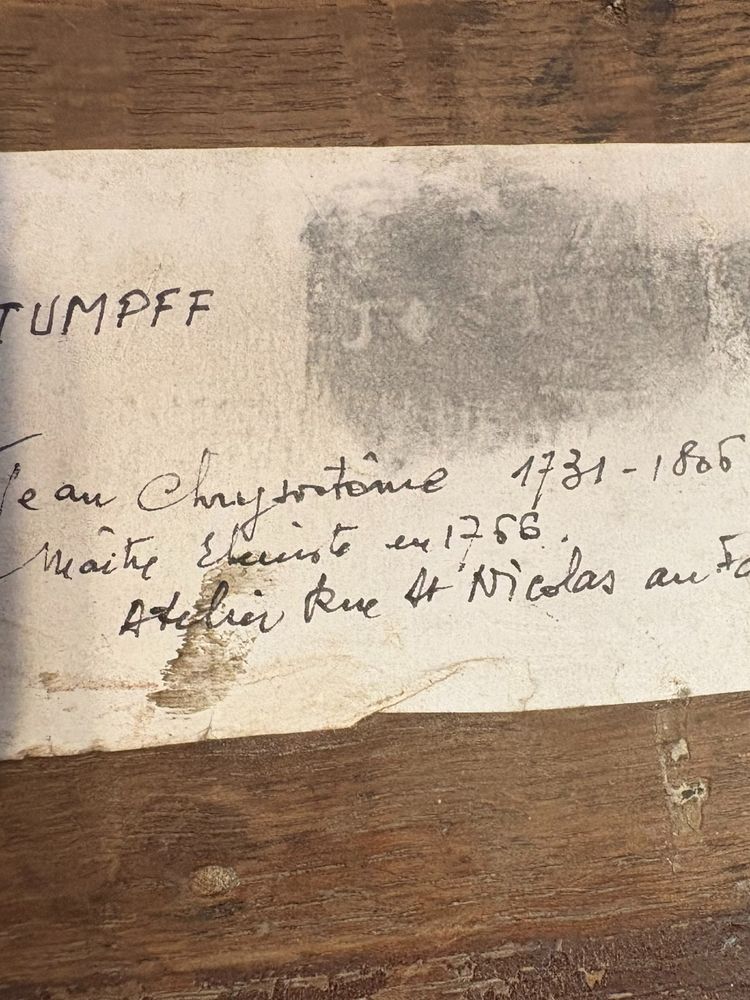 TUMPFF
Jean Chrysostôme 1731-1806
Maître Ebeniste en 1766.
Atelier Rue St Nicolas au Fa